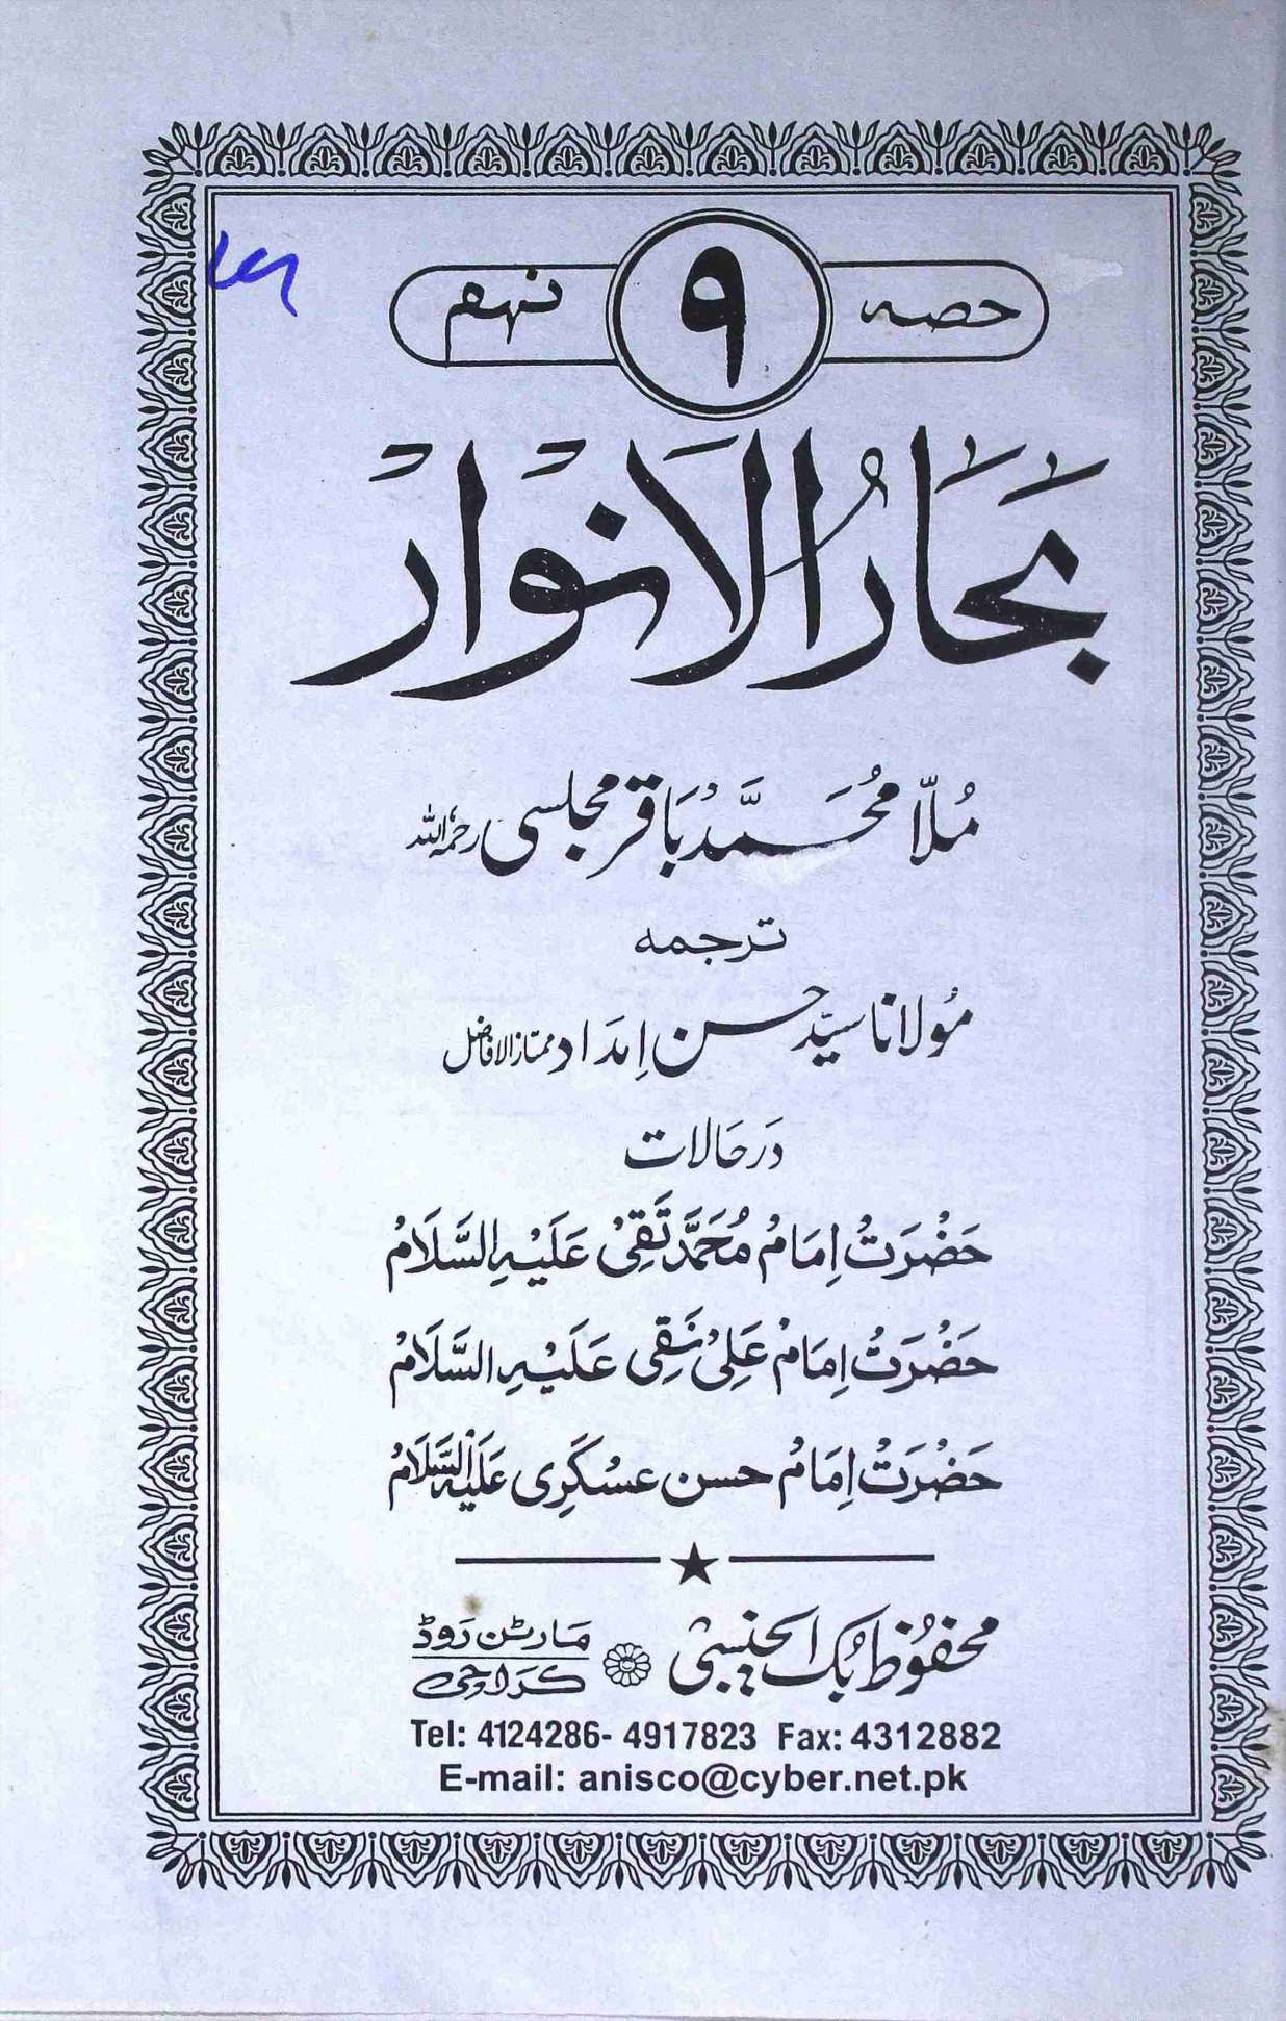 حصہ ۹ نہم
بحَارُ الاَنوْارْ
مُلّا مُحَمَّد بَاقر مجلسی رحمۃ اللہ
ترجمہ
مُولانا سیّد حسن اِمدَاد ممتاز الافاضل
دَر حَالات
حَضْرَتْ اِمَامُ مُحَمَّد تَقِیْ عَلَیْہِ السَّلَامْ
حَضْرَتْ اِمَامْ عَلِیْ نَقِی عَلَیْہِ السَّلَامْ
حَضْرَتْ اِمَامْ حسن عسْکَرِی عَلَیْہِ السَّلَامْ
محفُوظ بُک ایجنسی مَارٹن رَوڈ کَراچی
Tel: 4124286- 4917823 Fax: 4312882
E-mail: anisco@cyber.net.pk